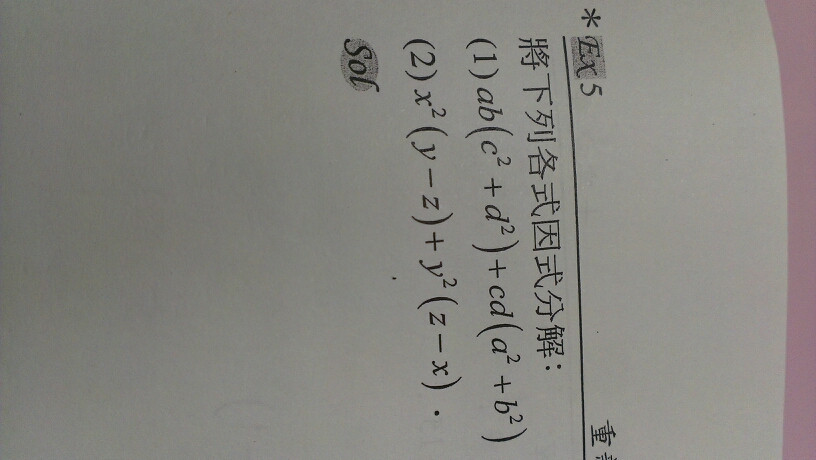 重
* Ex 5
將下列各式因式分解：
(1) ab(c² + d²) + cd(a² + b²)
(2) x²(y − z) + y²(z − x).
Sol